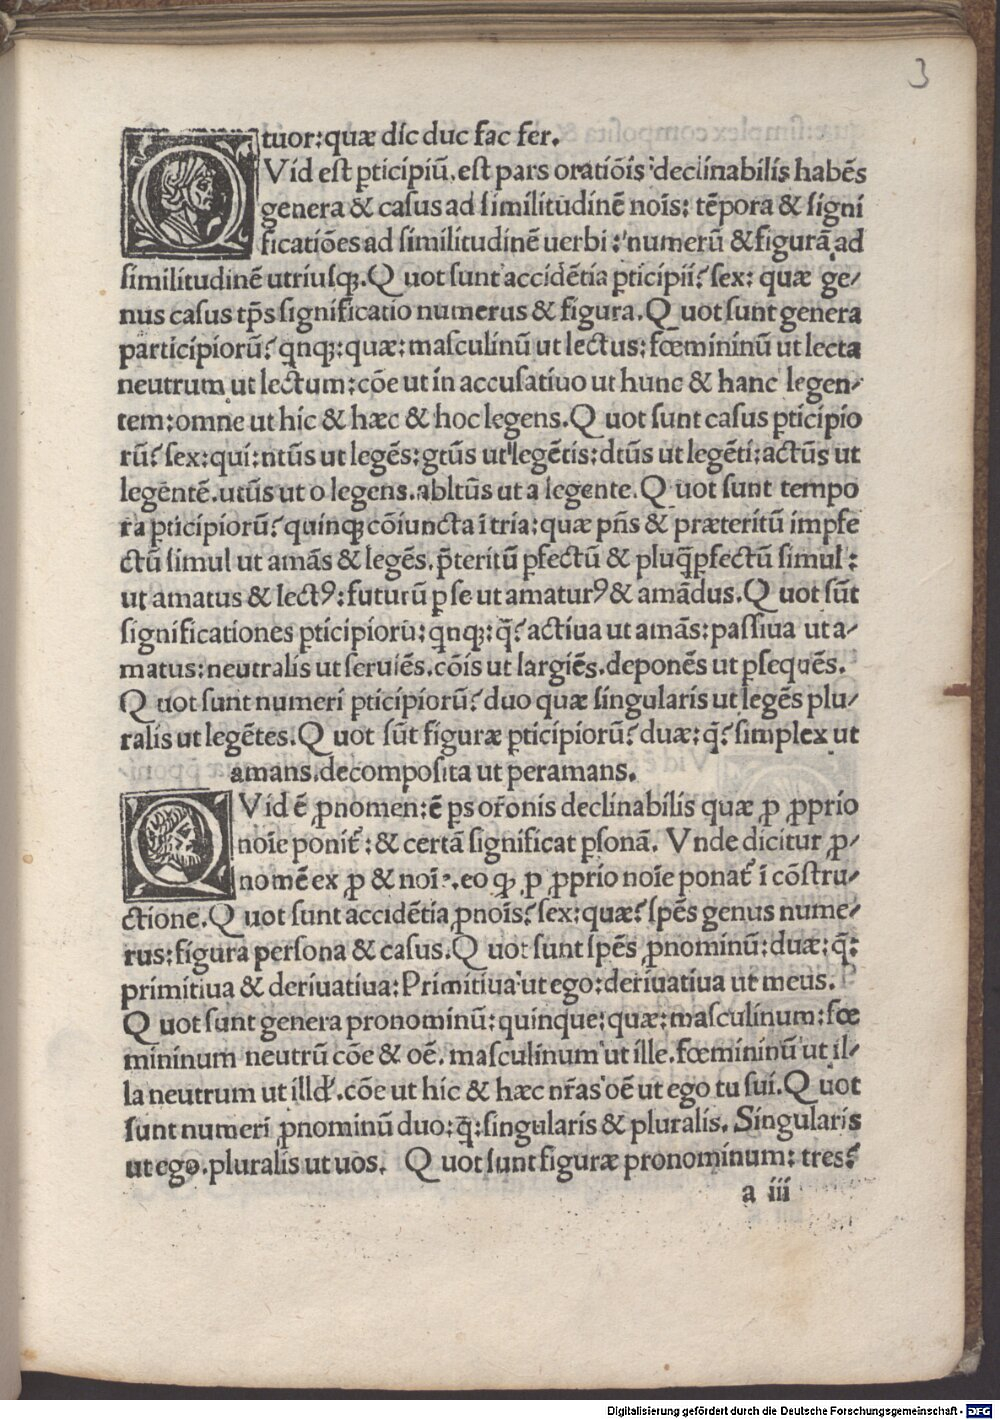 3
tuor:quæ dic duc fac fer.
QVid est ꝑticipiũ.est pars oratiõis declinabilis habẽs
genera & casus ad similitudinẽ nois: tẽpora & signi
ficatiões ad similitudinẽ uerbi: numerũ & figurã ad
similitudinẽ utriusqꝫ. Q uot sunt accidẽtia ꝑticipii? sex: quæ ge-
nus casus tp̃s significatio numerus & figura. Q uot sunt genera
participiorũ? qnqꝫ:quæ:masculinũ ut lectus:fœmininũ ut lecta
neutrum ut lectum:cõe ut in accusatiuo ut hunc & hanc legen-
tem:omne ut hic & hæc & hoc legens. Q uot sunt casus ꝑticipio
rũ? sex:qui:ntũs ut legẽs:gtũs ut legẽtis:dtũs ut legẽti:actũs ut
legẽntẽ.utũs ut o legens.abltũs ut a legente. Q uot sunt tempo
ra ꝑticipiorũ? quinqꝫ cõiuncta ĩ tria:quæ pñs & præteritũ impfe
ctũ simul ut amãs & legẽs.p̃teritũ ꝑfectũ & pluq̃ꝑfectũ simul:
ut amatus & lectꝰ:futurũ ꝑ se ut amaturꝰ & amãdus. Q uot sũt
significationes ꝑticipiorũ:qnqꝫ:q̃? actiua ut amãs:passiua ut a-
matus:neutralis ut seruiẽs.cõis ut largiẽs.deponẽs ut ꝑsequẽs.
Q uot sunt numeri ꝑticipiorũ? duo quæ singularis ut legẽs plu-
ralis ut legẽtes. Q uot sũt figuræ ꝑticipiorũ? duæ:q̃? simplex ut
amans.decomposita ut peramans.
QVid ẽ ꝓnomen:ẽ ps or̃onis declinabilis quæ ꝓ ꝓprio
noĩe ponit̃:& certã significat ꝑsonã. Vnde dicitur ꝓ-
nomẽ ex ꝓ & noĩe.eo qꝫ ꝓ ꝓprio noĩe ponat̃ ĩ cõstru-
ctione. Q uot sunt accidẽtia ꝓnoĩs? sex:quæ? spẽs genus nume-
rus:figura persona & casus. Q uot sunt spẽs ꝓnominũ:duæ:q̃:
primitiua & deriuatiua:Primitiua ut ego:deriuatiua ut meus.
Q uot sunt genera pronominũ:quinque:quæ:masculinum:fœ
mininum neutrũ cõe & oẽ. masculinum ut ille.fœmininũ ut il-
la neutrum ut illd̾.cõe ut hic & hæc nr̃as oẽ ut ego tu sui. Q uot
sunt numeri ꝓnominũ duo:q̃:singularis & pluralis. Singularis
ut ego.pluralis ut uos. Q uot sunt figuræ pronominum:tres?
a iii
Digitalisierung gefördert durch die Deutsche Forschungsgemeinschaft - DFG